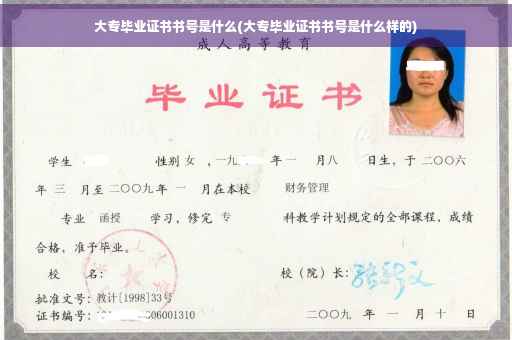 大专毕业证书书号是什么(大专毕业证书书号是什么样的)
成人高等教育
毕业证书
学生 性别 女 ，一九 年一 月八 日生，于二〇〇六
年 三 月至二〇〇九年 一 月在本校 财务管理
专业 函授 学习，修完 专 科教学计划规定的全部课程，成绩
合格，准予毕业。
校 名： 校（院）长：
批准文号：教计[1998]33号
证书编号： 06001310 二〇〇九 年 一 月 十 日